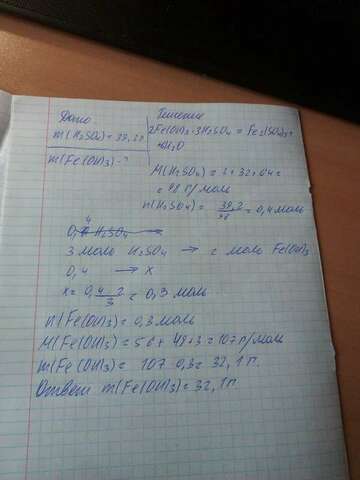 Дано
Решение
m(H₂SO₄)=39,2г
2Fe(OH)₃+3H₂SO₄ = Fe₂(SO₄)₃+
+6H₂O
m(Fe(OH)₃)-?
M(H₂SO₄) = 2+32+64=
= 98 г/моль
n(H₂SO₄) = 39,2/98 = 0,4 моль
3 моль H₂SO₄ → 2 моль Fe(OH)₃
0,4 → x
x = 0,4 2/3 = 0,3 моль
n(Fe(OH)₃) = 0,3 моль
M(Fe(OH)₃) = 56+48+3=107 г/моль
m(Fe(OH)₃) = 107 0,3 = 32,1 г.
Ответ m(Fe(OH)₃)=32,1 г